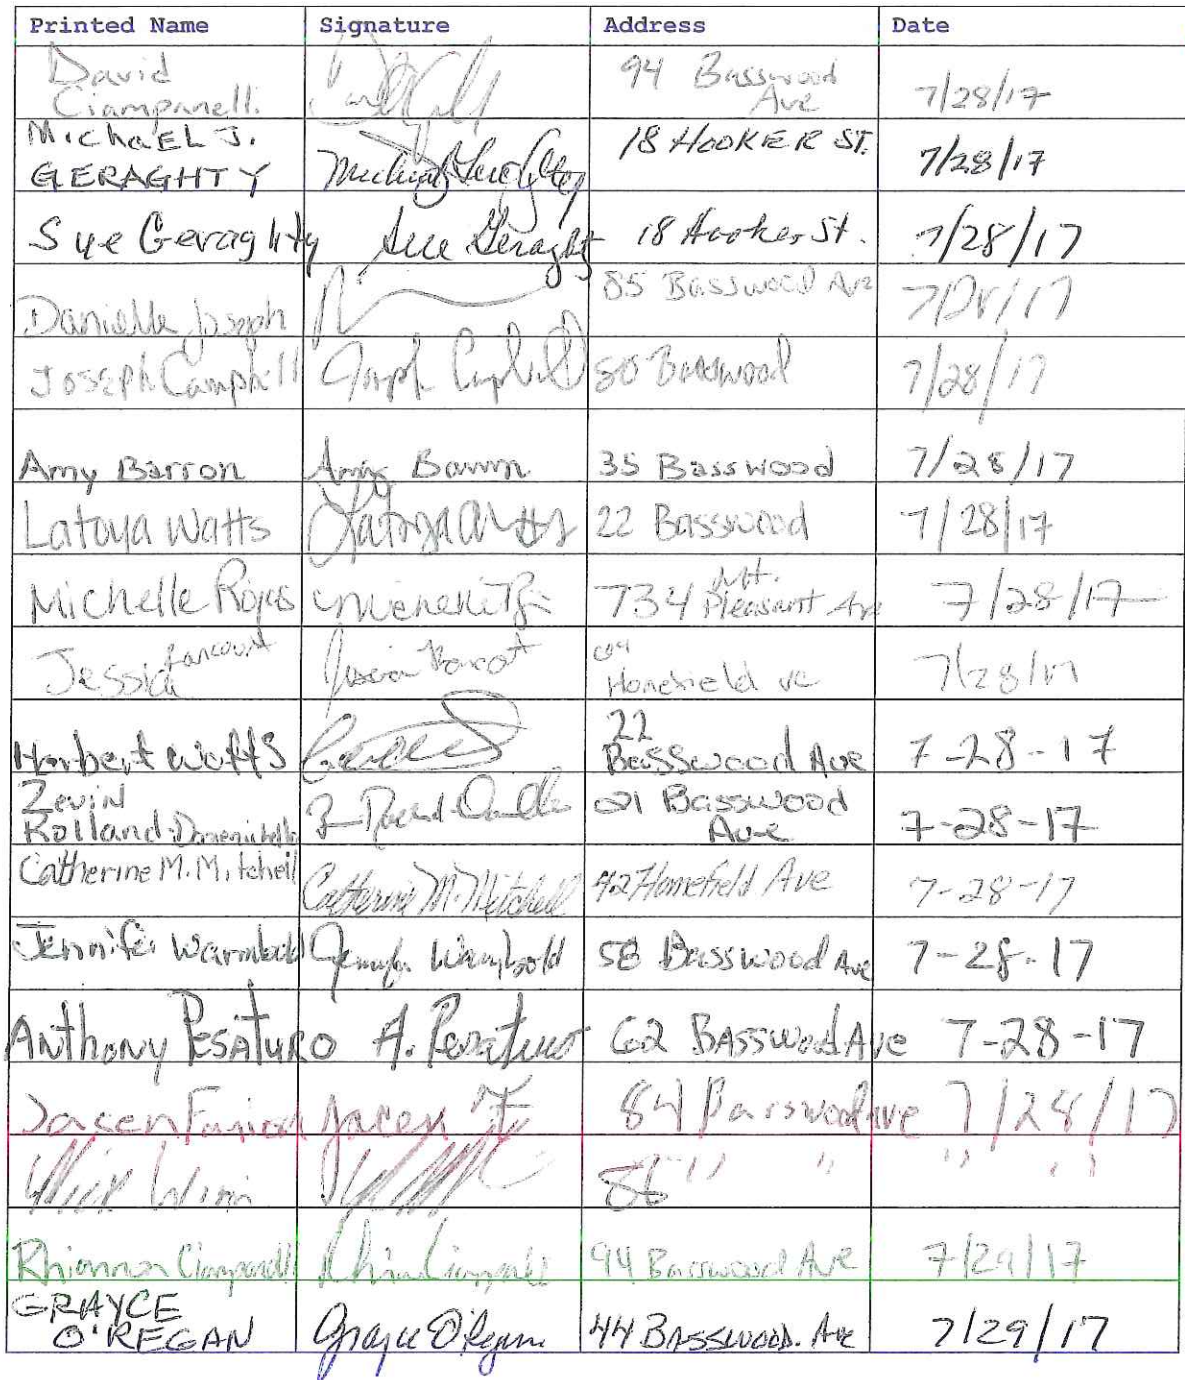 Printed Name Signature Address Date
David Ciampanelli 94 Basswood Ave 7/28/17
MichaEL J. GERAGHTY 18 HOOKER ST. 7/28/17
Sue Geraghty Sue Geraghty 18 Hooker St. 7/28/17
Danielle Joseph 85 Basswood Ave 7/28/17
Joseph Campbell Joseph Campbell 80 Basswood 7/28/17
Amy Barron Amy Barron 35 Basswood 7/28/17
Latoya Watts Latoya Watts 22 Basswood 7/28/17
Michelle Rojas 734 Mt. Pleasant Ave 7/28/17
Jessica Rancourt Homefield 7/28/17
Herbert Watts 22 Basswood Ave 7-28-17
Zevin Rolland- 21 Basswood Ave 7-28-17
Catherine M. Mitchell Catherine M. Mitchell 42 Homefield Ave 7-28-17
Jennifer Warmbold Jennifer Warmbold 58 Basswood Ave 7-28-17
Anthony PESATURO A. Pesaturo 62 BASSWOOD Ave 7-28-17
Jasen 84 Basswood Ave 7/28/17
86 " " " "
Rhiannon Ciampanelli 94 Basswood Ave 7/29/17
GRAYCE O'REGAN Grayce O'Regan 44 BASSWOOD. Ave 7/29/17